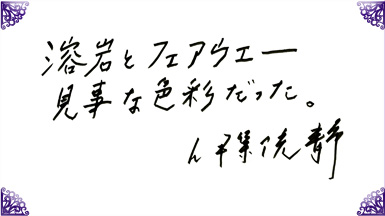 溶岩とフェアウェー
見事な色彩だった。